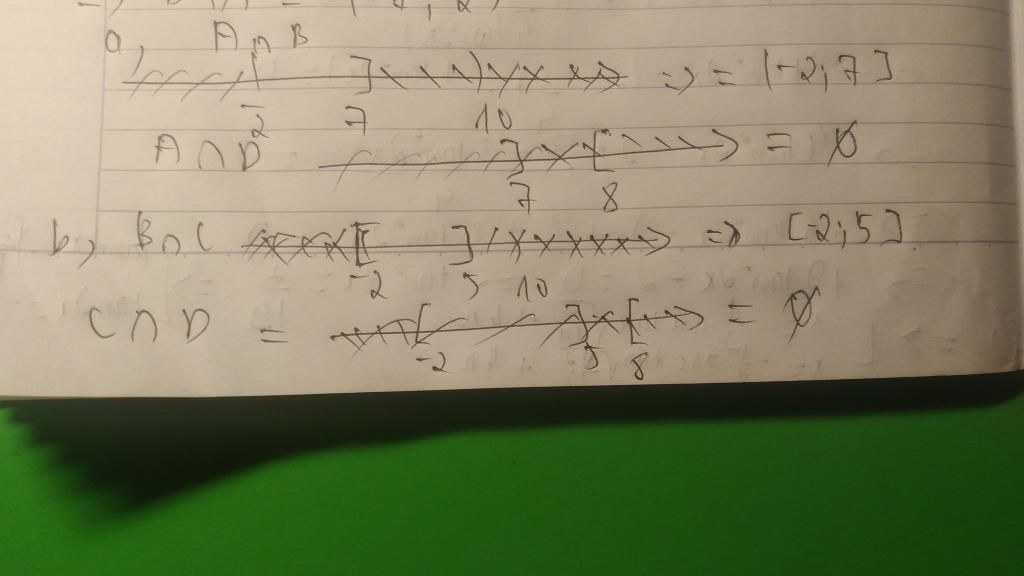 a, A ∩ B
=> = [-2; 7]
-2 7 10
A ∩ D = ∅
7 8
b, B ∩ C => [-2; 5]
-2 5 10
C ∩ D = = ∅
-2 5 8